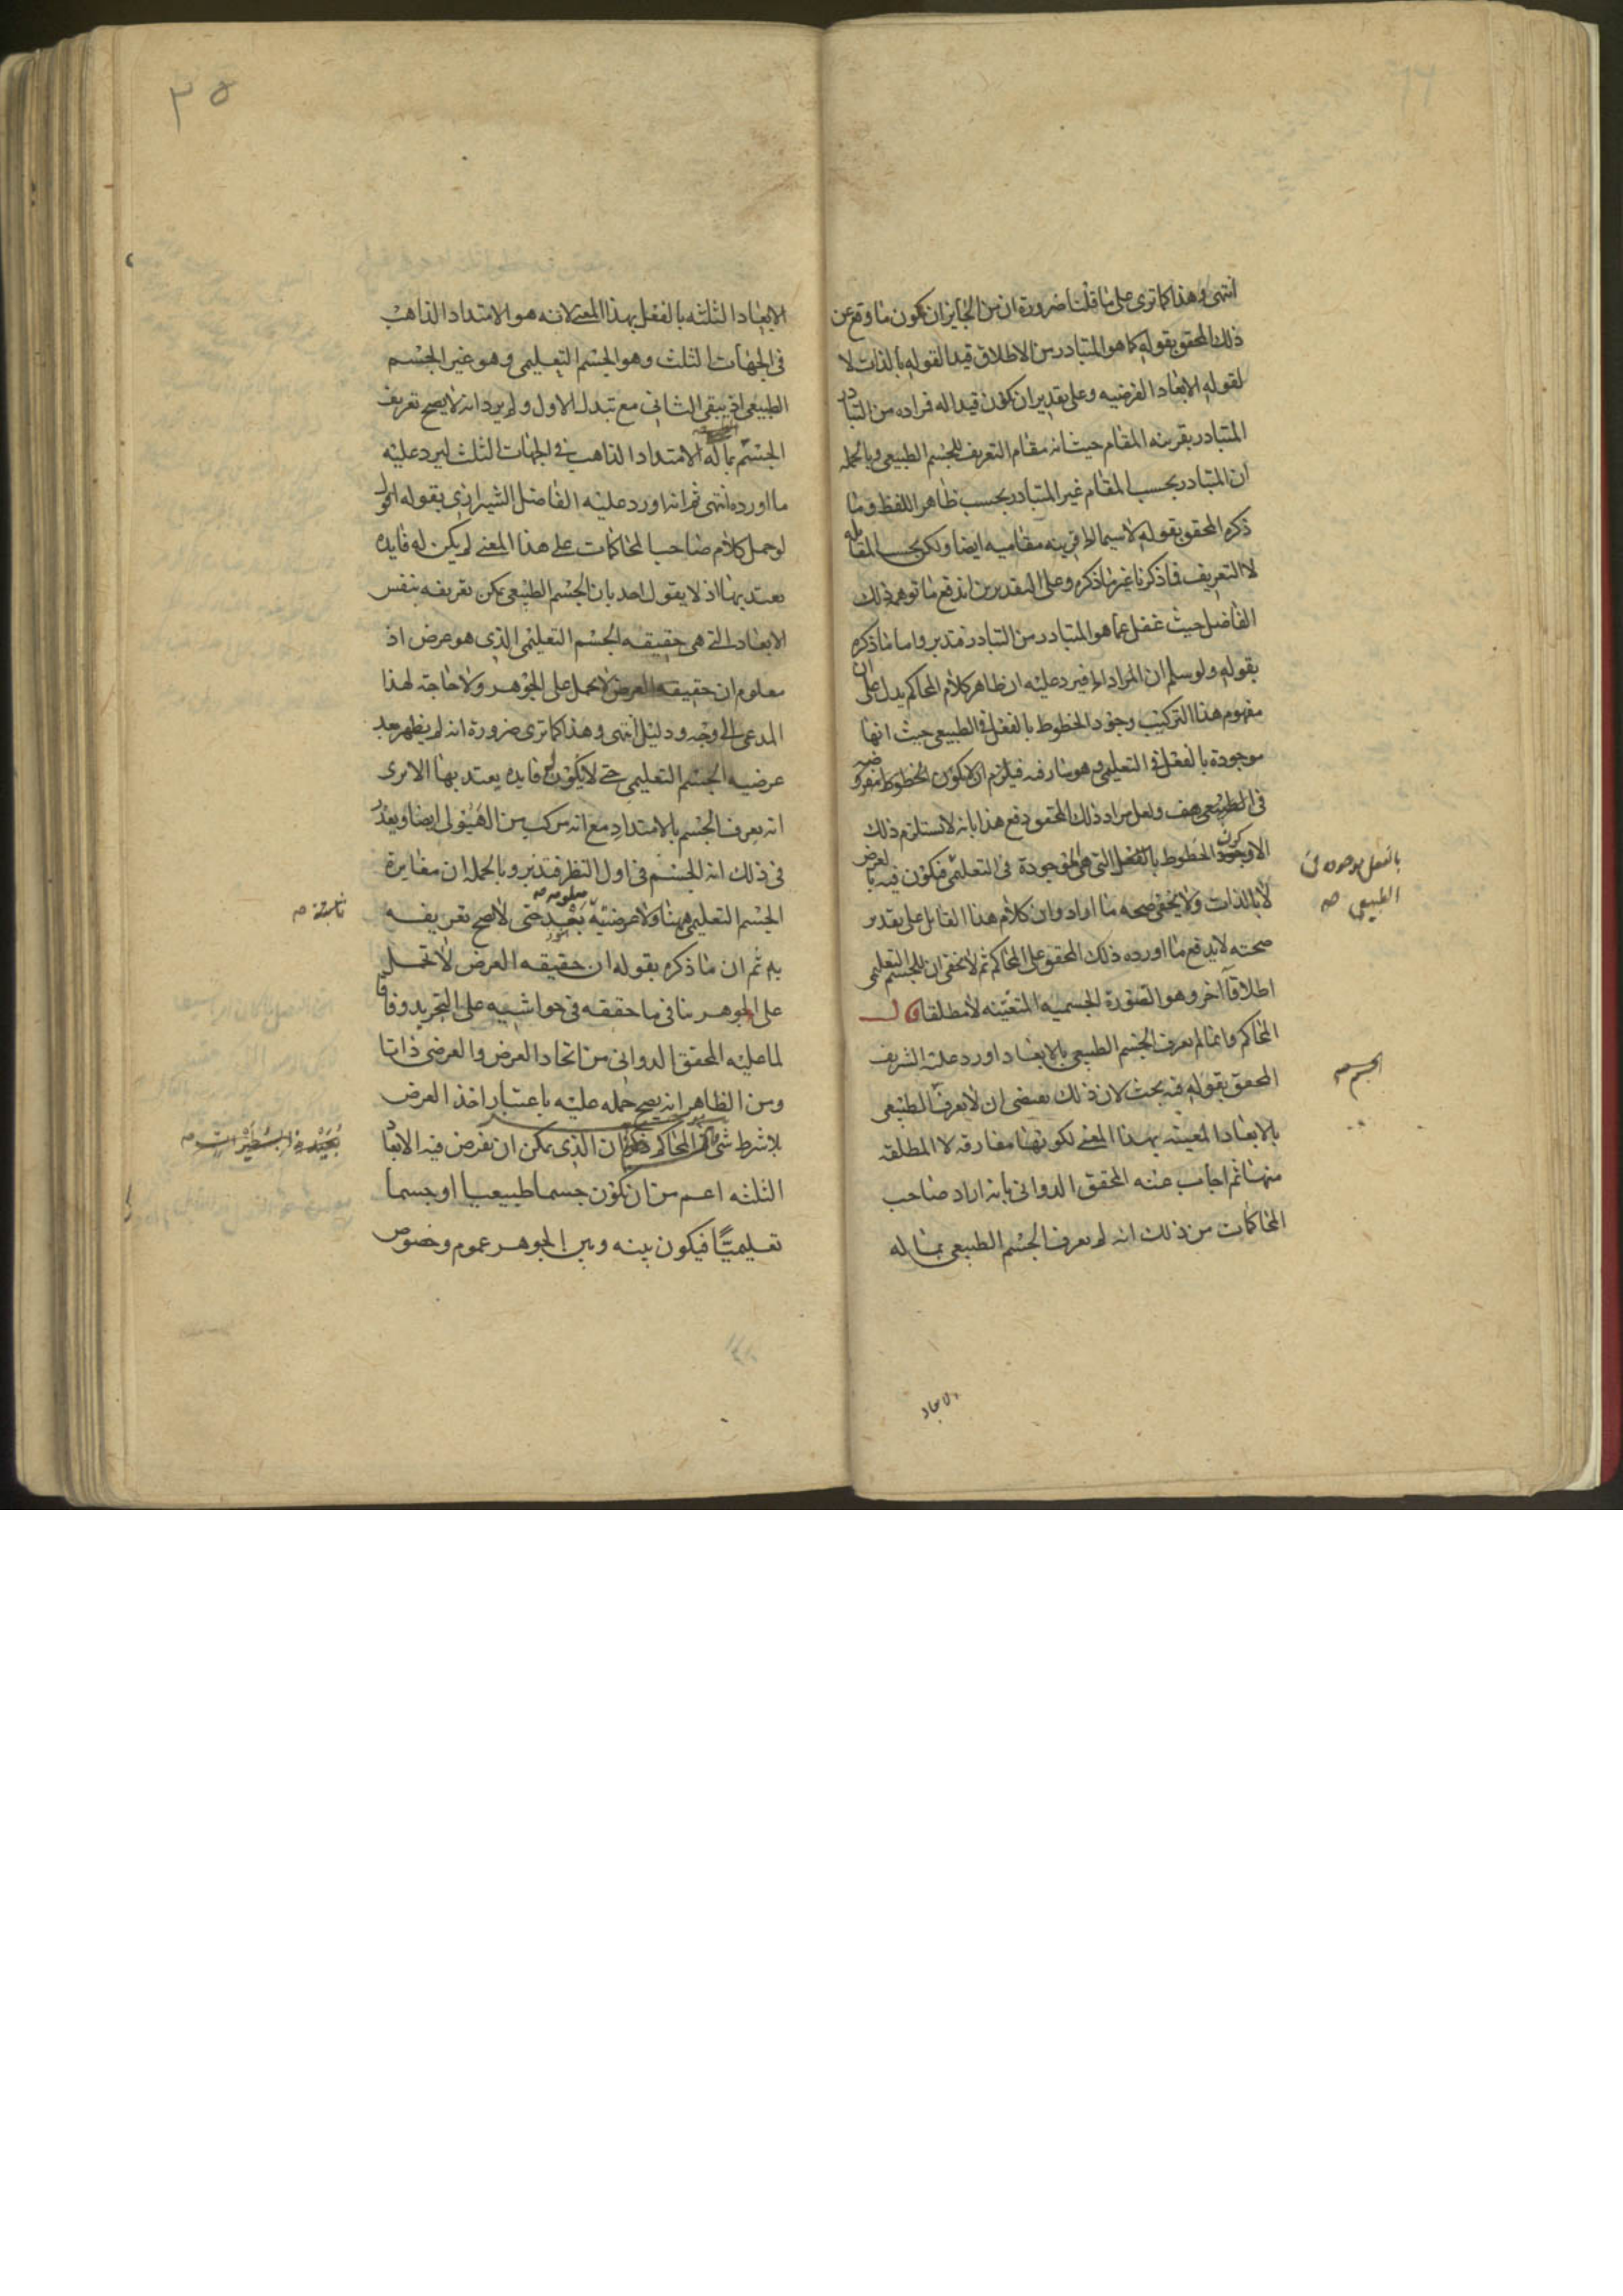 انتهى وهذا كما ترى على ما قلنا ضرورة ان من الجايز ان يكون ما وقع عن
ذلك المحقق بقوله كما هو المتبادر من الاطلاق قيدا لقوله بالذات لا
لقوله الابعاد الفرضيه وعلى تقدير ان يكون قيدا له فراده من التبادر
المتبادر بقرينه المقام حيث انه مقام التعريف للجسم الطبيعى وبالجمله
ان المتبادر بحسب المقام غير المتبادر بحسب ظاهر اللفظ وما
ذكره المحقق بقوله لاسيما الخ قرينه مقاميه ايضا ولكن بحسب المقابله
لا التعريف فما ذكرنا غير ما ذكره وعلى التقديرين اندفع ما توهم ذلك
الفاضل حيث غفل عما هو المتبادر من التبادر فتدبر واما ما ذكره
بقوله ولو سلم ان المراد الخ فيرد عليه ان ظاهر كلام المحاكم يدل على ان
مفهوم هذا التركيب وجود الخطوط بالفعل فى الطبيعى حيث انها
موجودة بالفعل فى التعليمى وهو سار فيه فيلزم ان يكون الخطوط مفروضه
فى الطبيعى هف ولعل مراد ذلك المحقق دفع هذا بانه لا يستلزم ذلك
الا كون الخطوط التى هى موجودة فى التعليمى فيكون فيه بالعرض
بالفعل موجوده فى
الطبيعى صح
لا بالذات ولا يخفى صحه ما اراد وان كلام هذا القايل على تقدير
صحته لا يدفع ما اورده ذلك المحقق على المحاكم ثم لا يخفى ان للجسم التعليمى
اطلاقا آخر وهو الصورة الجسميه المتعينه لا مطلقا قال
المحاكم وانما لم يعرف الجسم الطبيعى بالابعاد اورد عليه الشريف
الجسم صح
المحقق بقوله فيه بحث لان ذلك يقتضى ان لا يعرف الطبيعى
بالابعاد المعينه بهذا المعنى لكونها مفارقه لا المطلقه
منها ثم اجاب عنه المحقق الدوانى بانه اراد صاحب
المحاكمات من ذلك انه لم يعرف الجسم الطبيعى بما له
الابعاد
٣٥
الابعاد الثلثه بالفعل بهذا المعنى لانه هو الامتداد الذاهب
فى الجهات الثلث وهو الجسم التعليمى وهو غير الجسم
الطبيعى اذ يبقى الثانى مع تبدل الاول ولم يرد انه لا يصح تعريف
الجسم بماله الامتداد الذاهب فى الجهات الثلث ليرد عليه
ما اورده انتهى ثم انه اورد عليه الفاضل الشيرازى بقوله اقول
لو حمل كلام صاحب المحاكمات على هذا المعنى لم يكن له فايده
يعتد بها اذ لا يقول احد بان الجسم الطبيعى يمكن تعريفه بنفس
الابعاد التى هى حقيقه الجسم التعليمى الذى هو عرض اذ
معلوم ان حقيقه العرض لا يحمل على الجوهر ولا حاجة لهذا
المدعى الى وجه ودليل انتهى وهذا كما ترى ضرورة انه لم يظهر بعد
عرضيه الجسم التعليمى حتى لا يكون له فايده يعتد بها الا يرى
انه يعرف الجسم بالامتداد مع انه مركب من الهيولى ايضا ويعذر
فى ذلك انه الجسم فى اول النظر فتدبر وبالجمله ان مغايرة
الجسم التعليمى ههنا ولا عرضيته بعد معلومه حتى لا يصح تعريفه
ثابته صح
به ثم ان ما ذكره بقوله ان حقيقه العرض لا تحمل
على الجوهر ينافى ما حققه فى حواشيه على التجريد وفاقا
لما عليه المحقق الدوانى من اتحاد العرض والعرضى ذاتا
ومن الظاهر انه يصح حمله عليه باعتبار اخذ العرض
لا بشرط شئ المحاكم ان الذى يمكن ان يفرض فيه الابعاد
الثلثه اعم من ان يكون جسما طبيعيا او جسما
تعليميًا فيكون بينه وبين الجوهر عموم وخصوص